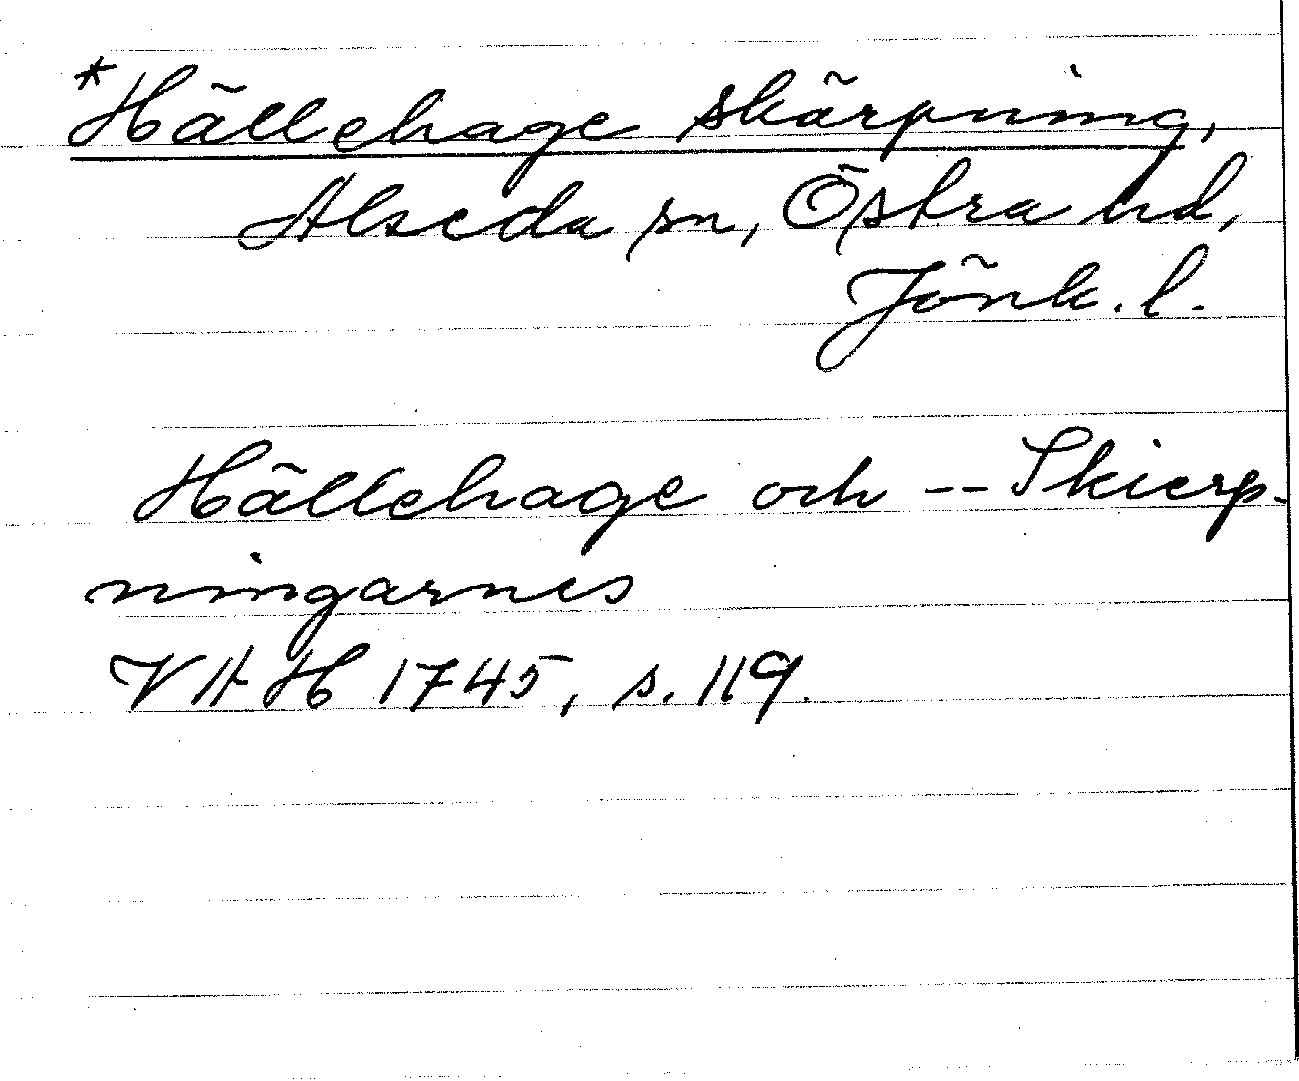 *Hällehage skärpning,
Alseda sn, Östra hd,
Jönk. l.
Hällehage och -- Skierp-
ningarnes
VAH 1745, s. 119.